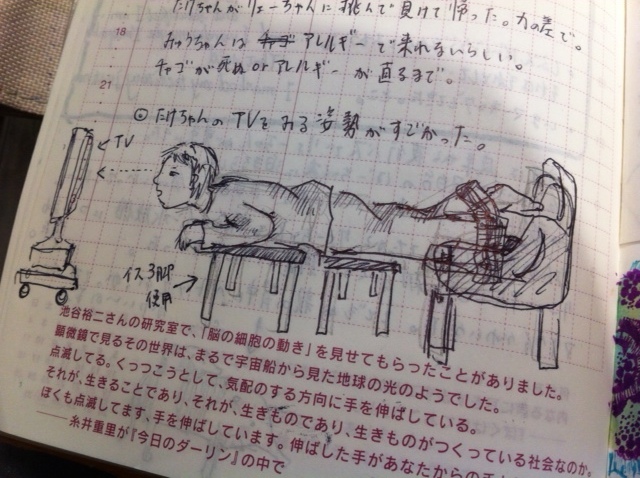 たけちゃんがリェーちゃんに挑んで負けて帰った。力の差で。
18
みゅうちゃんは チャゴ アレルギーで来れないらしい。
チャゴが死ぬ or アレルギーが直るまで。
21
◎ たけちゃんの TVをみる姿勢がすごかった。
TV
イス3脚
使用
池谷裕二さんの研究室で、「脳の細胞の動き」を見せてもらったことがありました。
顕微鏡で見るその世界は、まるで宇宙船から見た地球の光のようでした。
点滅してる。くっつこうとして、気配のする方向に手を伸ばしている。
それが、生きることであり、それが、生きものであり、生きものがつくっている社会なのか。
ぼくも点滅してます、手を伸ばしています。伸ばした手があなたからの手
——糸井重里が『今日のダーリン』の中で